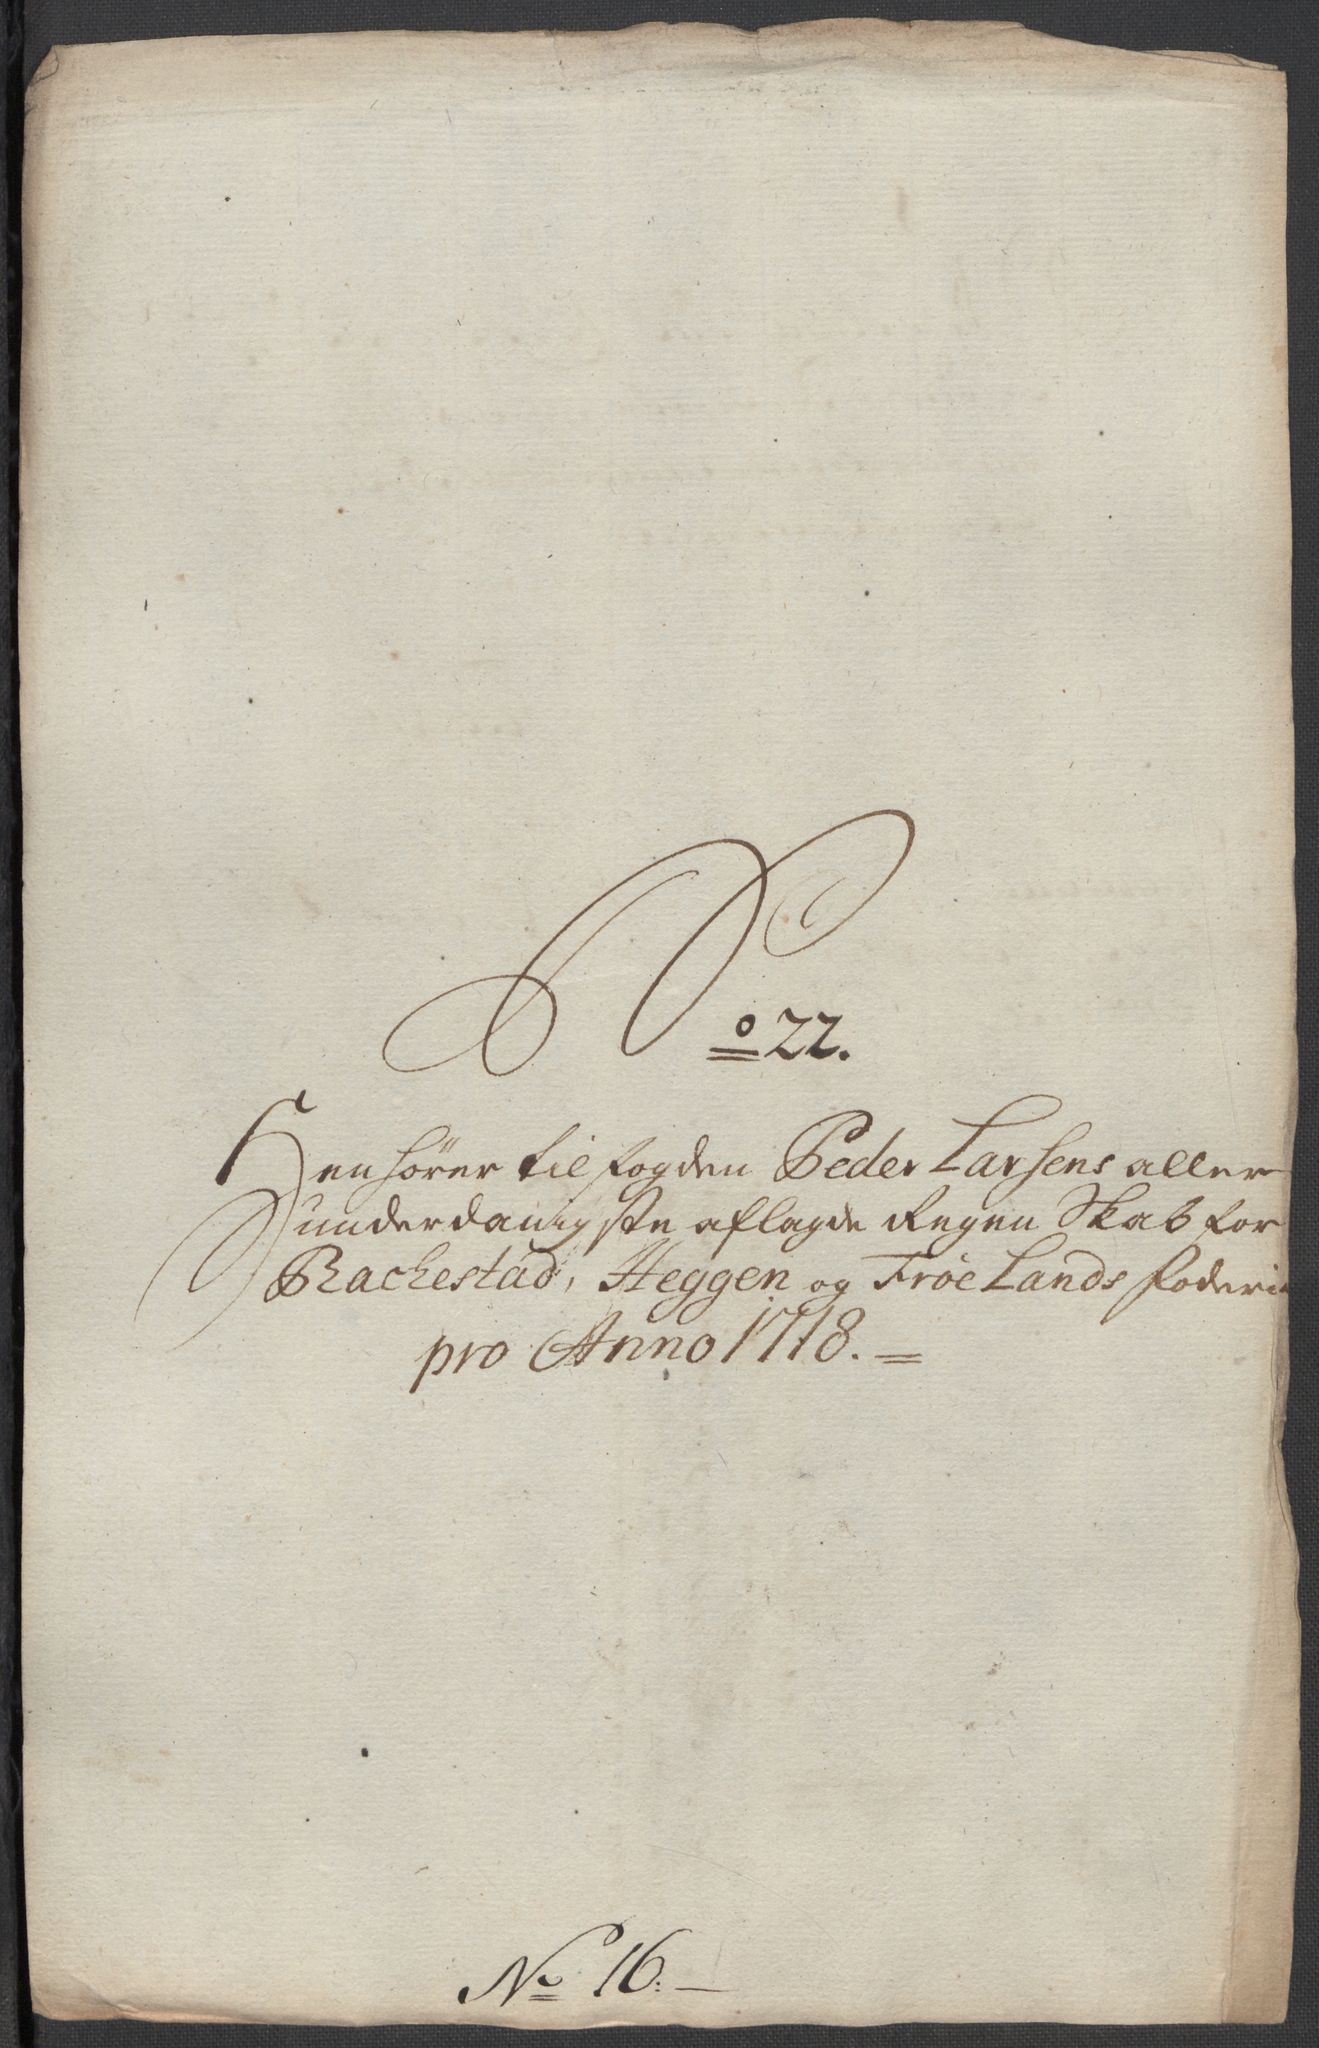 No 22.
Henhører til fogden Peder Larsens aller
underdanigste aflagde Regen Skab for
Rachestad, Heggen og Frøe Lands foderi
pro Anno 1718.
No 16.